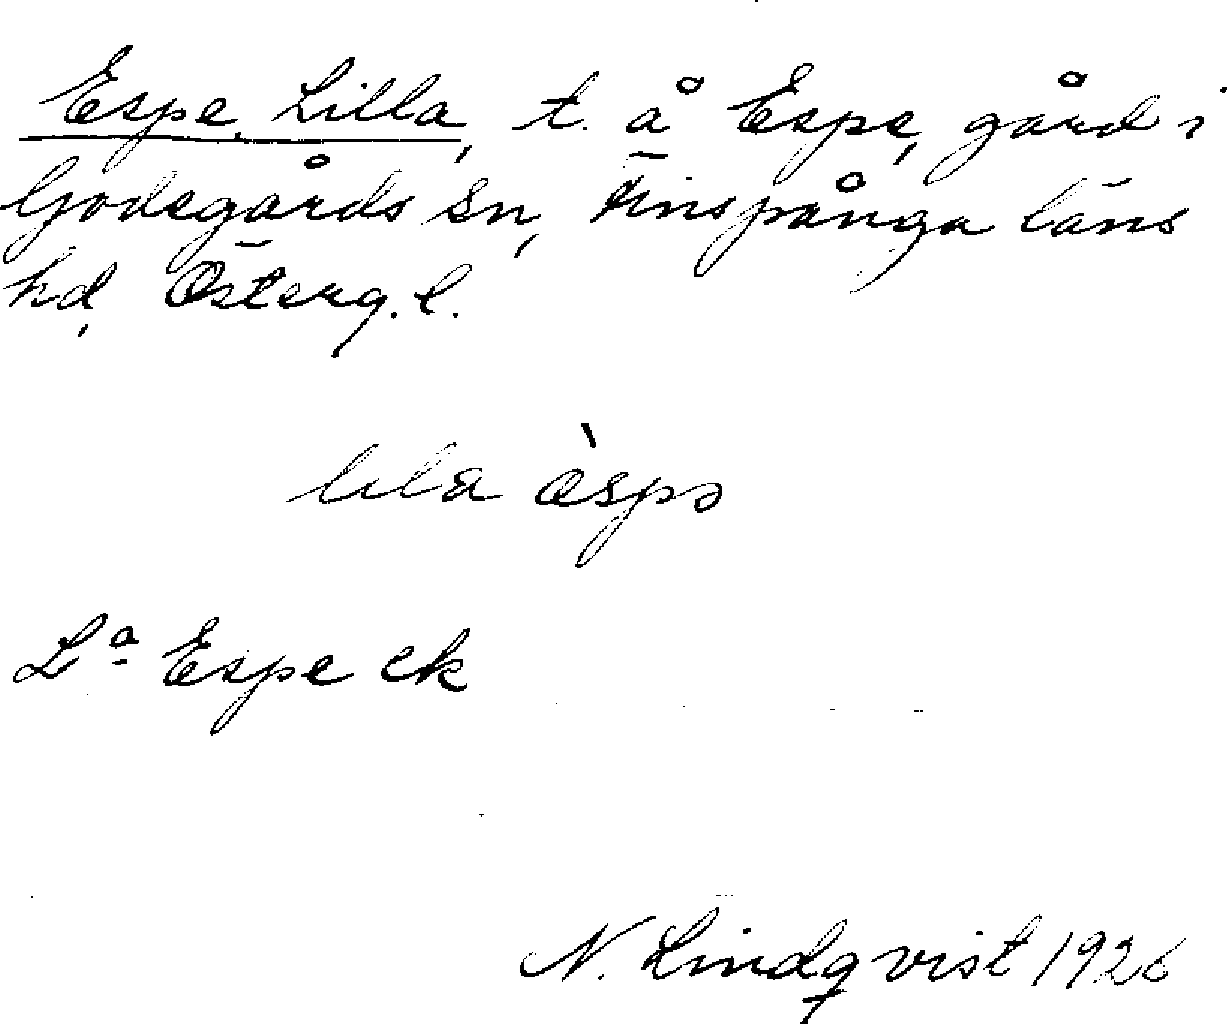 Espe, Lilla, t. å Espe, gård i
Godegårds sn, Finspånga läns
hd, Österg. l.
lıla æ̀spə
Lª Espe ek
N. Lindqvist 1926